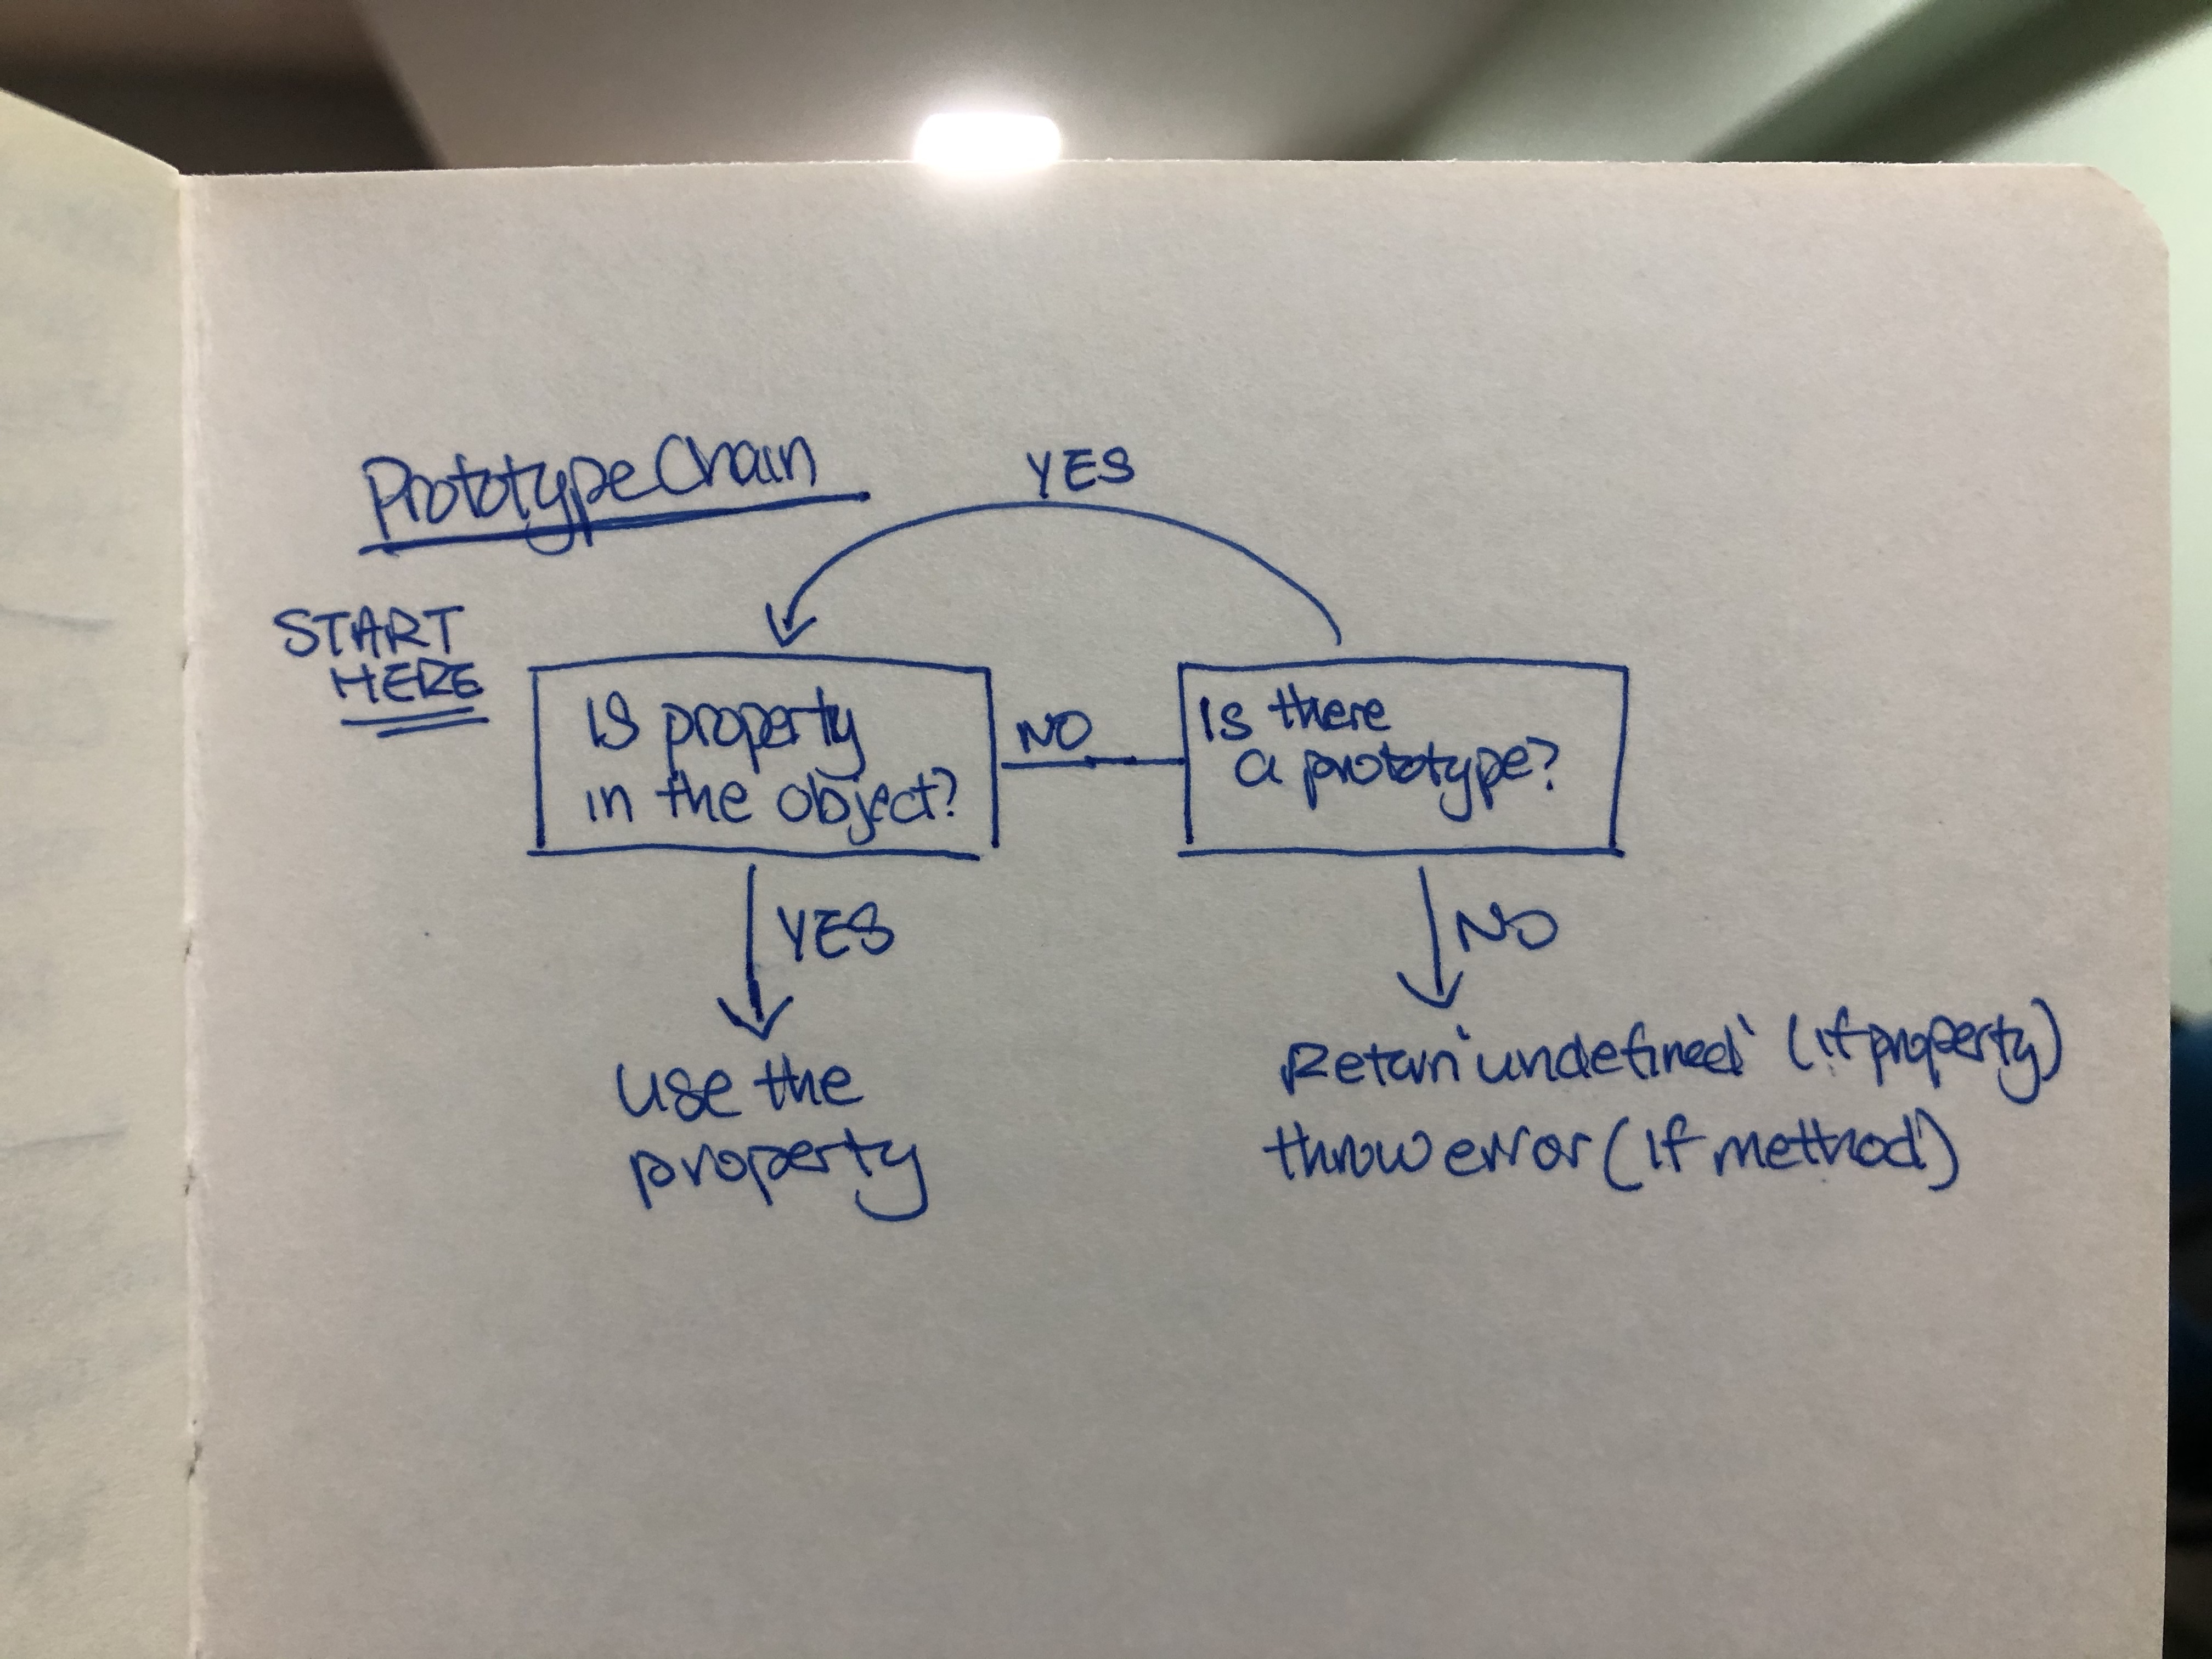 Prototype Chain
YES
START
HERE
Is property
in the object?
NO
Is there
a prototype?
YES
NO
use the
property
Return 'undefined' (if property)
throw error (if method)